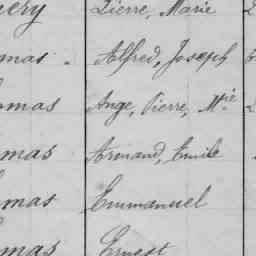 Pierre, Marie
mas . Alfred, Joseph
omas Ange, Pierre, Mie
mas Armand, Emile
mas Emmanuel
mas Ernest